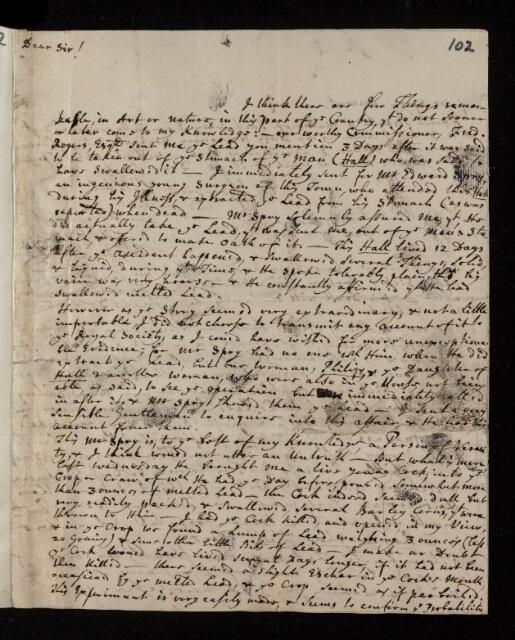 102
Dear Sir!
I think there are few Things remar-
kable, in Art or nature, in this part of ye Country, yt do not sooner
or later come to my Knowledge: – our worthy Commissioner, Fred.
Rogers Esqr. sent me ye Lead you mention 3 Days after it was said
to be taken out of ye Stomach of ye Man (Hall) who was said to
have swallowed it – I immediately sent for Mr Edward Spry,
an ingenious young Surgeon of this Town, who attended this Hall
during his Illness, & extracted ye Lead from his Stomach (as was
reported) when dead – Mr Spry solemnly assured me yt He
did actually take ye Lead, yt was sent me, out of ye man's Sto
mach, & offered to make Oath of it – This Hall lived 12 Days
after ye accident happened, & swallowed several Things, solid
& liquid, during ye Time, & He spoke tolerably plain, tho' his
voice was very hoarse – & He constantly affirmed yt He had
swallowed melted Lead.
However as ye Story seemed very extraordinary, & not a little
improbable, I did not chose to transmit any Account of it to
ye Royal Society, as I could have wished for more unexceptiona
ble Evidence; for Mr Spry had no one with Him, when He did
extract ye Lead, but one woman, Philips; ye Daughter of
Hall & another woman, who were also in ye House, not being
able, as said, to see ye operation, but immediately called
in after it, & Mr Spry shewed them ye Lead – I sent a very
sensible Gentleman to enquire into this affair, & He had this
account from them.
This Mr Spry is, to ye best of my Knowledge a Person of Veraci
ty, & I think would not utter an Untruth – But what's more
last wednesday He brought me a live young Cock, into ye
Crop or Craw of wch He had ye Day before poured somewhat more
than 3 ounces of melted Lead – the Cock indeed seemed dull but
very readily pecked, & swallowed several Barley Corns, yt were
thrown to Him – I had ye Cock killed, and opened in my View,
& in ye Crop we found a Lump of Lead weighing 3 ounces (less
20 Grains) & some other little Bits of Lead – I make no Doubt
ye Cock would have lived several Days longer, if it had not been
then killed – there seemed a slight Eschar in ye Cock's Mouth
occasioned by ye melted Lead, & ye Crop seemed as if parboiled:
This Experiment is very easily made, & seems to confirm ye Probability